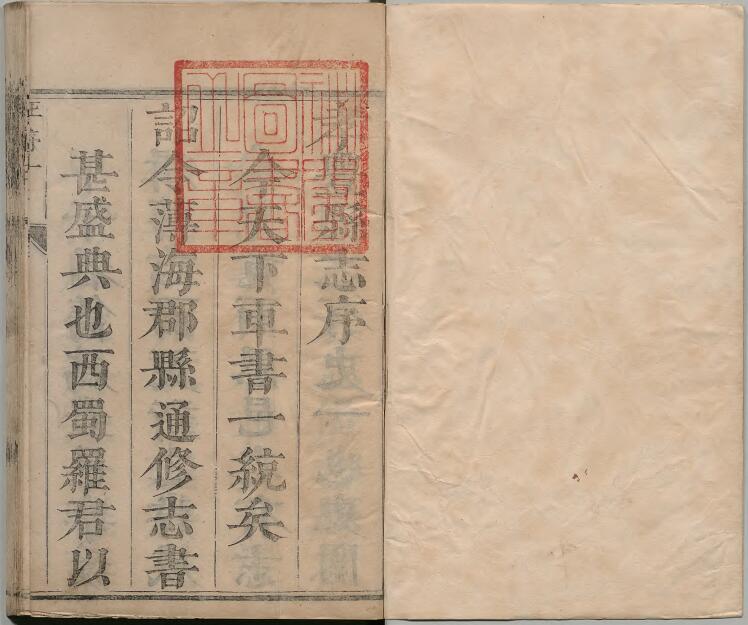 孝豐縣志序
今天下車書一統矣
詔令薄海郡縣通修志書
甚盛典也西蜀羅君以